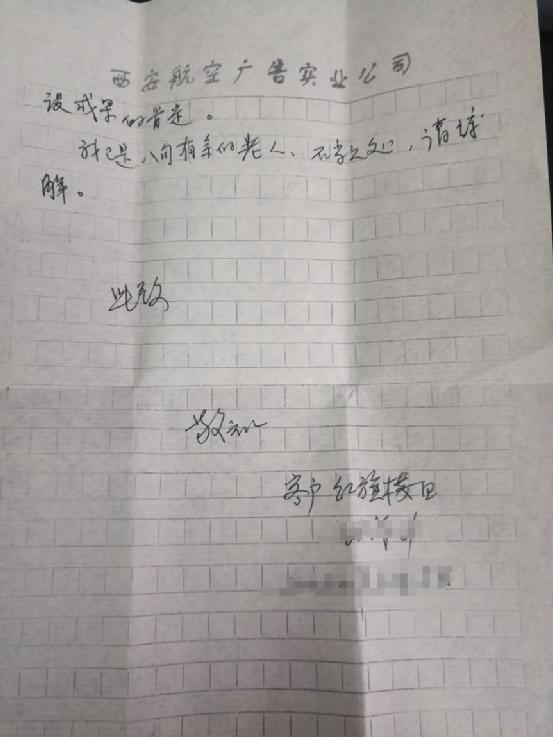 西安航空广告实业公司
设成果的肯定。
我已是八旬有余的老人、不当之处，请谅
解。
此致
敬礼
客户 红旗